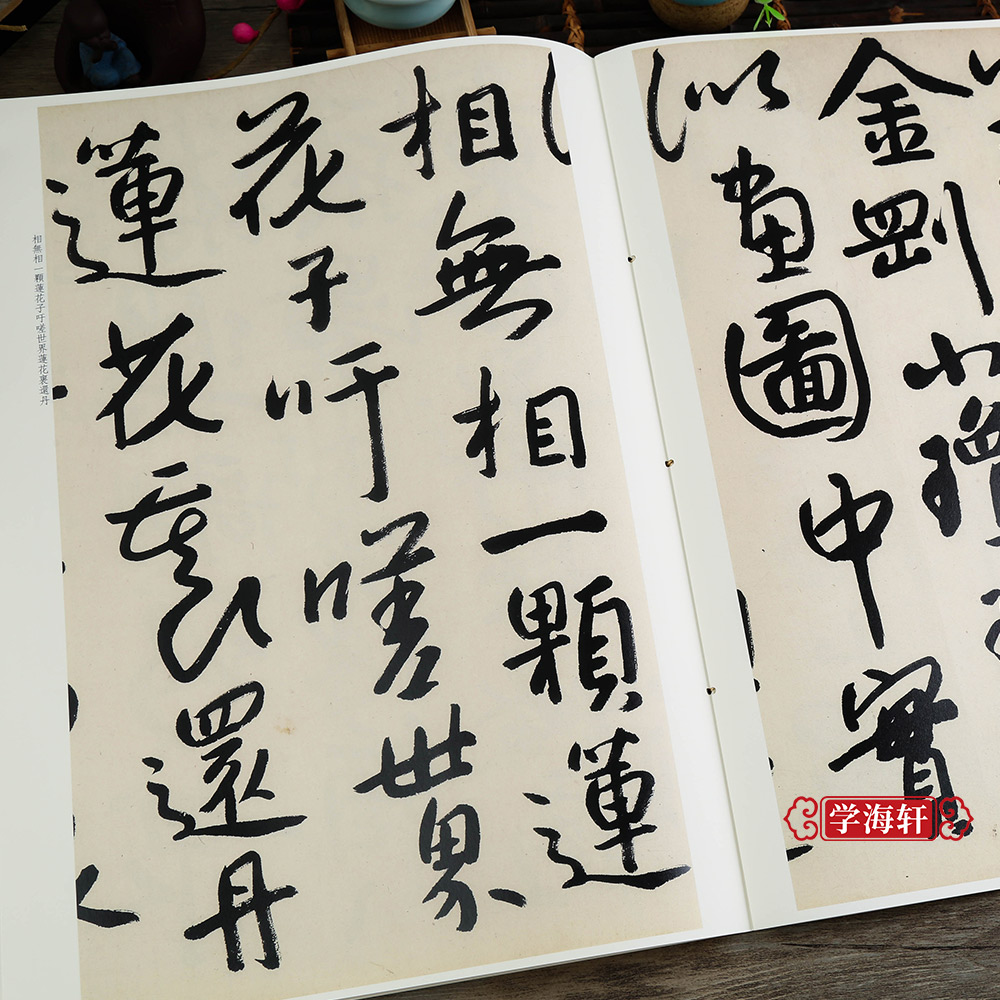 金剛
以畫圖中實
相無相一顆蓮
花子吁嗟世界
蓮花裏還丹
相無相一顆蓮花子吁嗟世界蓮花裏還丹
学海轩